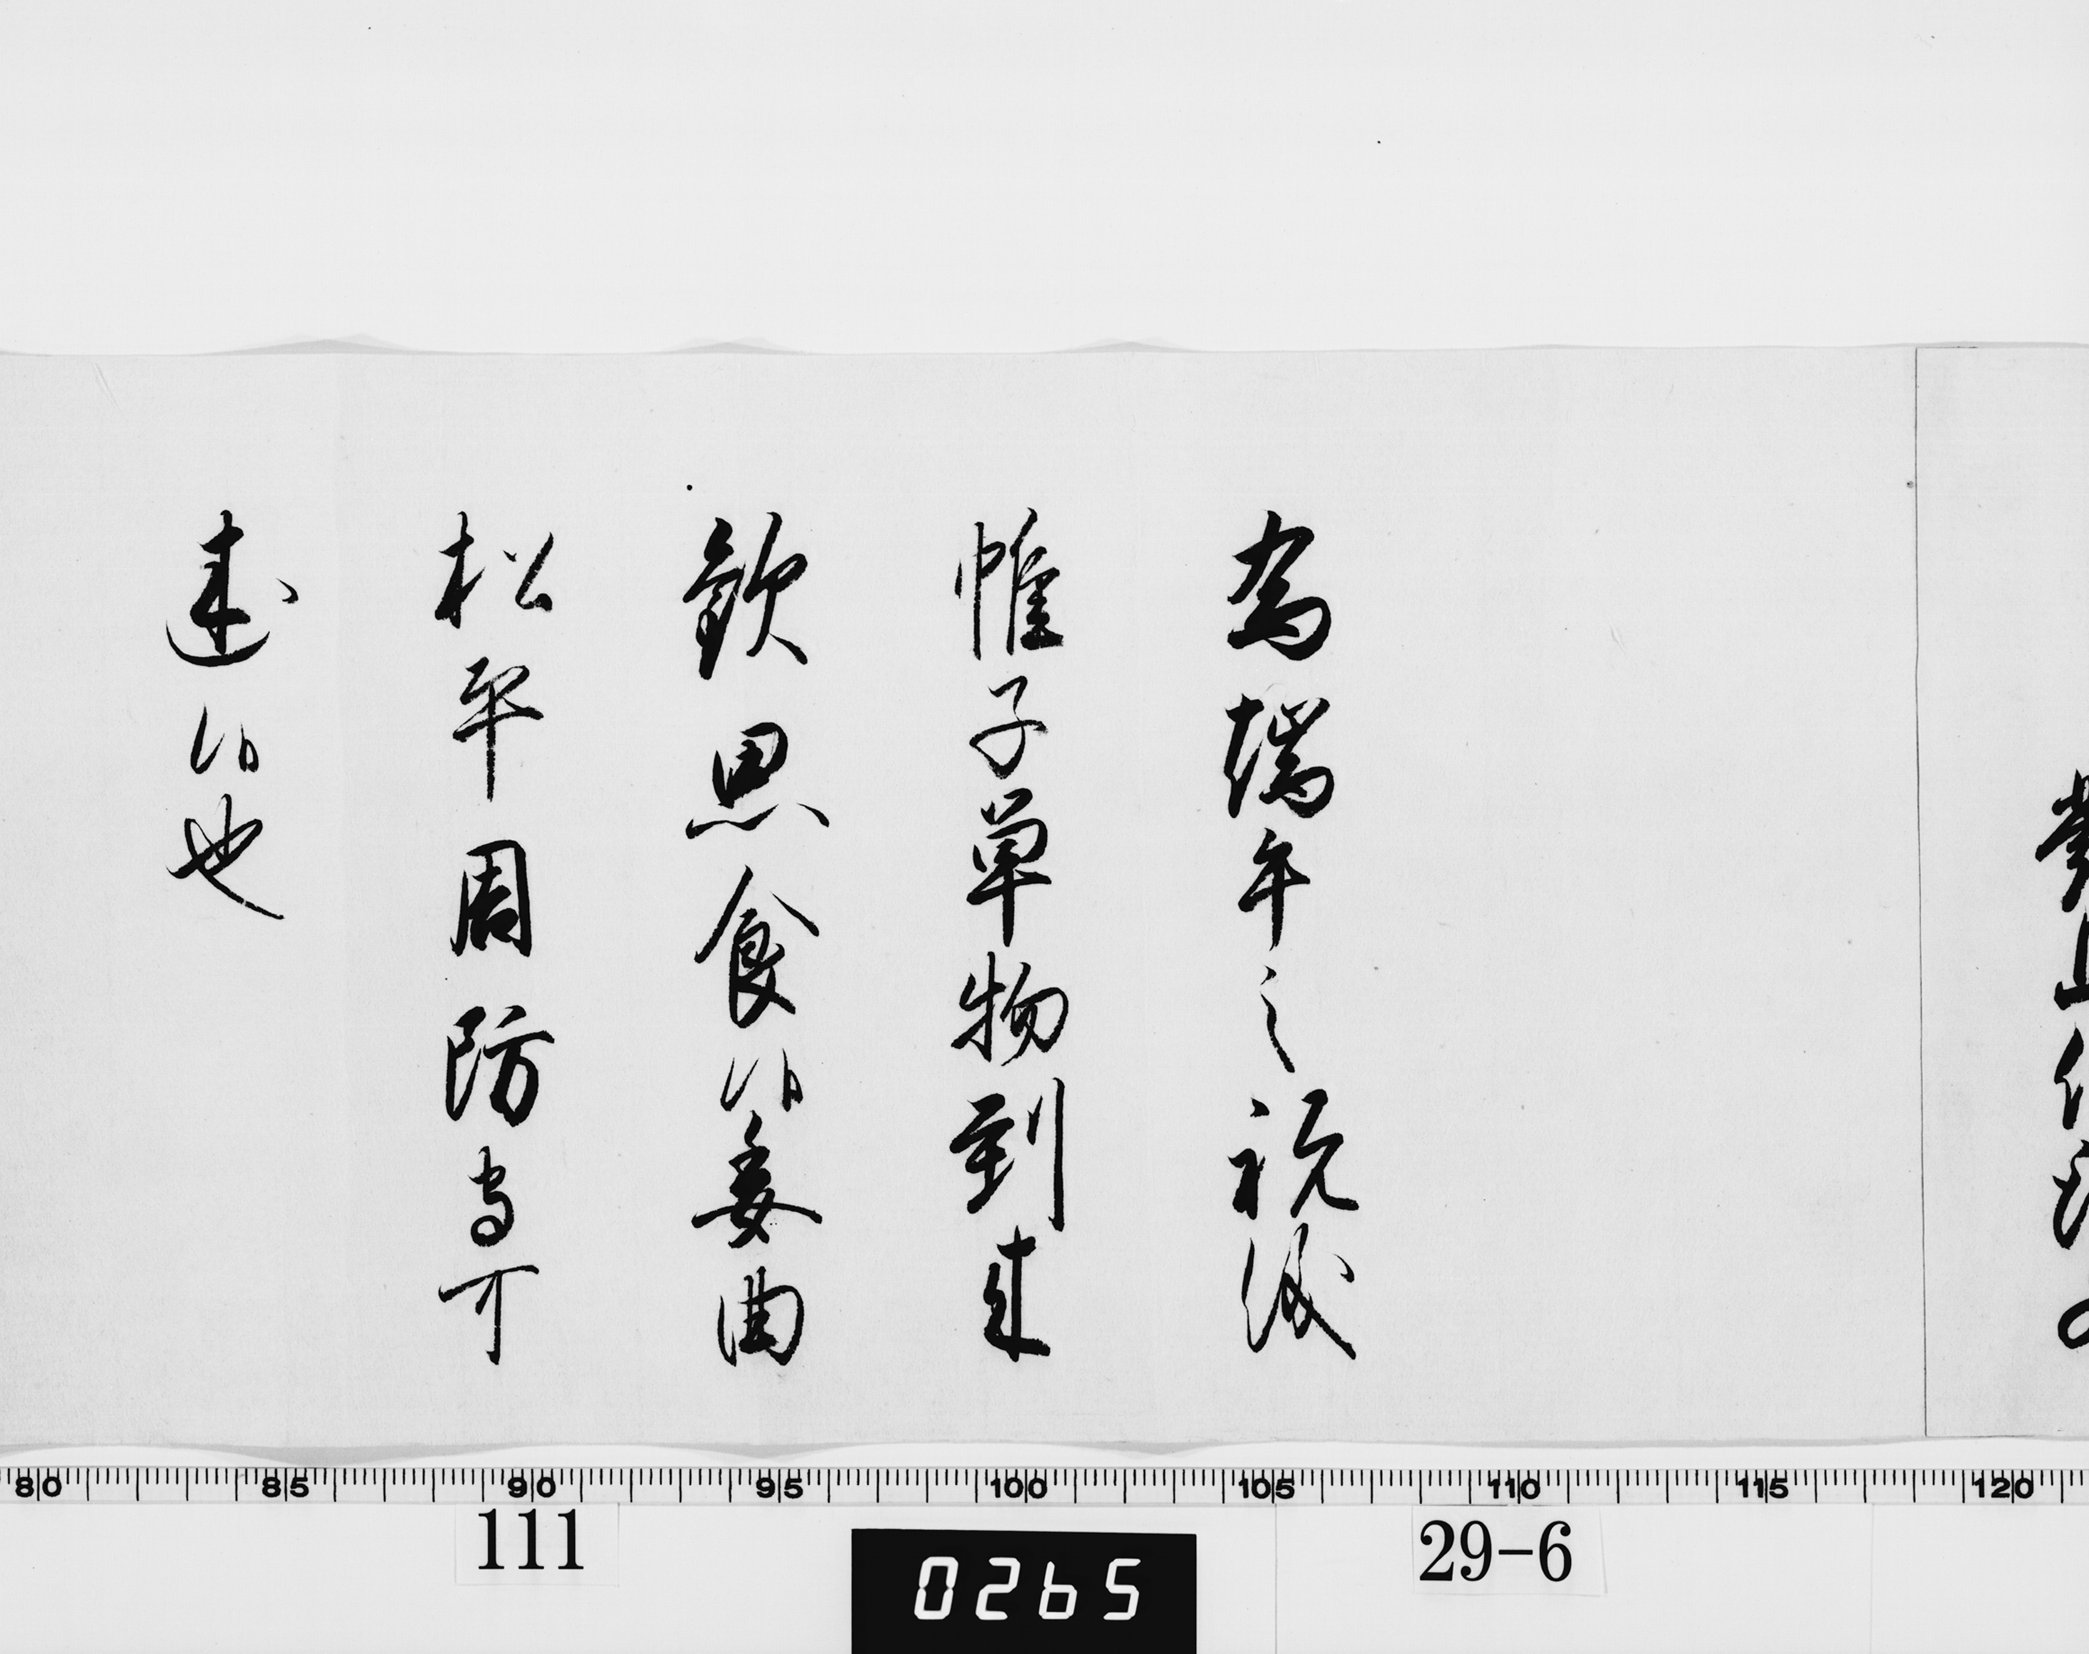 為端午之祝儀
帷子単物到来
歓思食候委曲
松平周防守可
述候也
80 85 90 95 100 105 110 115 120
111
0265
29-6